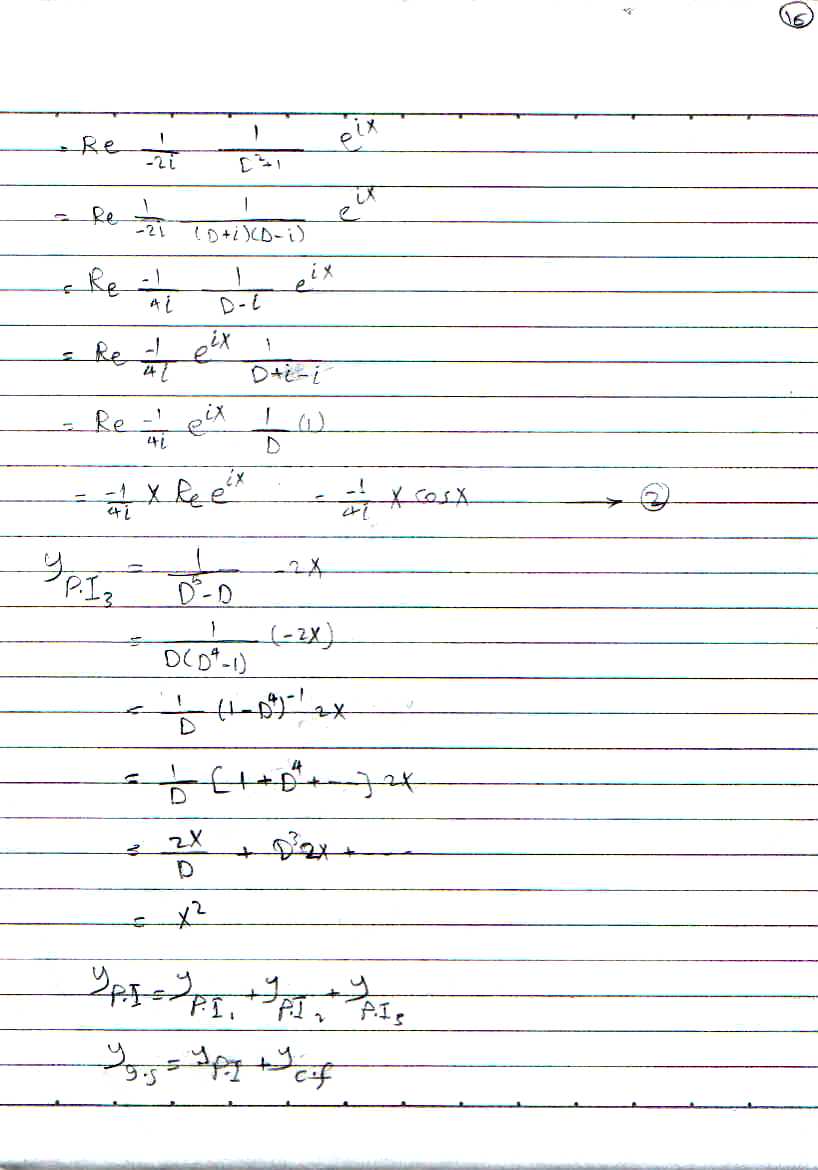 16
= Re 1/-2i 1/D²+1 e^ix
= Re 1/-2i 1/(D+i)(D-i) e^ix
= Re -1/4i 1/D-i e^ix
= Re -1/4i e^ix 1/D+i-i
= Re -1/4i e^ix 1/D (1)
= -1/4i x Re e^ix = -1/4i x cosx → 2
y P.I₃ = 1/D⁵-D -2x
= 1/D(D⁴-1) (-2x)
= 1/D (1-D⁴)⁻¹ 2x
= 1/D [1+D⁴+---] 2x
= 2x/D + D³2x + ----
= x²
y P.I = y P.I₁ + y P.I₂ + y P.I₃
y g.s = y P.I + y c.f